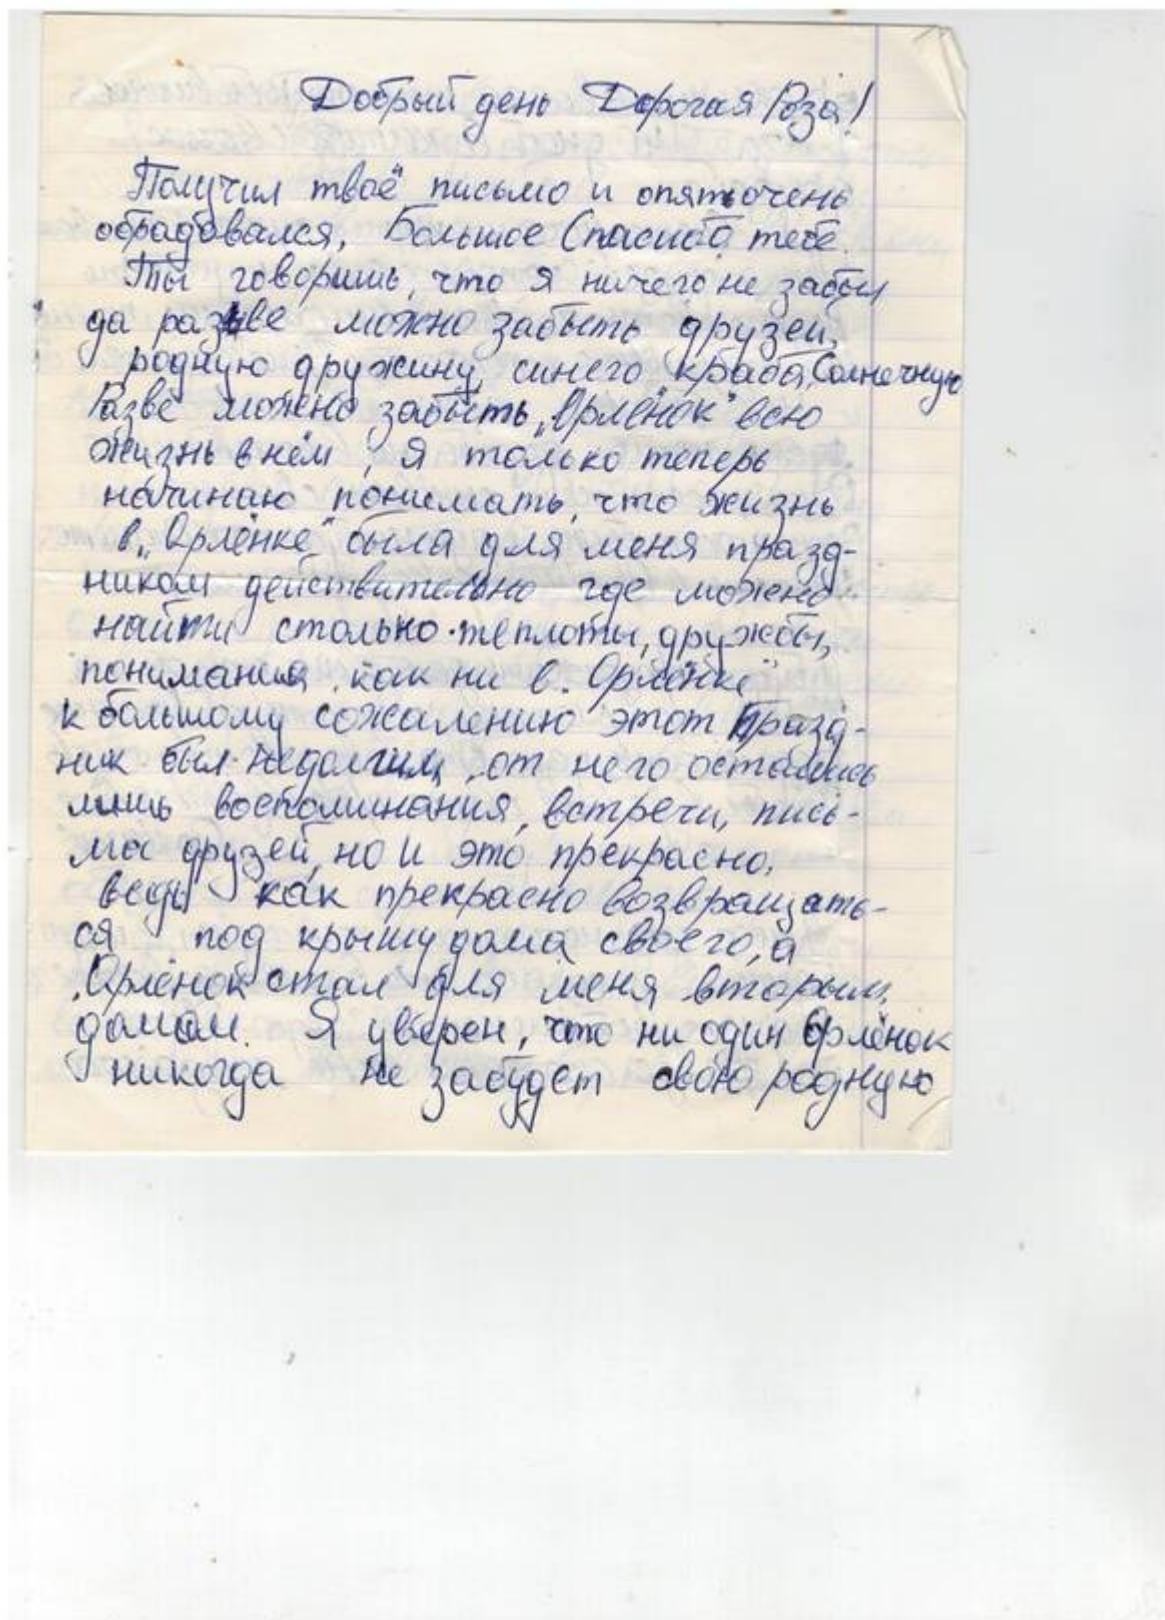 Добрый день Дорогая Роза!
Получил твоё письмо и опять очень
обрадовался. Большое Спасибо тебе.
Ты говоришь, что я ничего не забыл
да разве можно забыть друзей,
родную дружину, синего краба, Солнечную
Разве можно забыть „Орлёнок" всю
жизнь в нём, я только теперь
начинаю понимать, что жизнь
в „Орлёнке" была для меня празд-
ником действительно где можно
найти столько теплоты, дружбы,
понимания, как ни в „Орлёнке"
к большому сожалению этот празд-
ник был недолгим, от него остались
лишь воспоминания, встречи, пись-
ма друзей, но и это прекрасно,
ведь как прекрасно возвращать-
ся под крышу дома своего, а
„Орлёнок стал для меня вторым
домом. Я уверен, что ни один Орлёнок
никогда не забудет свою родную